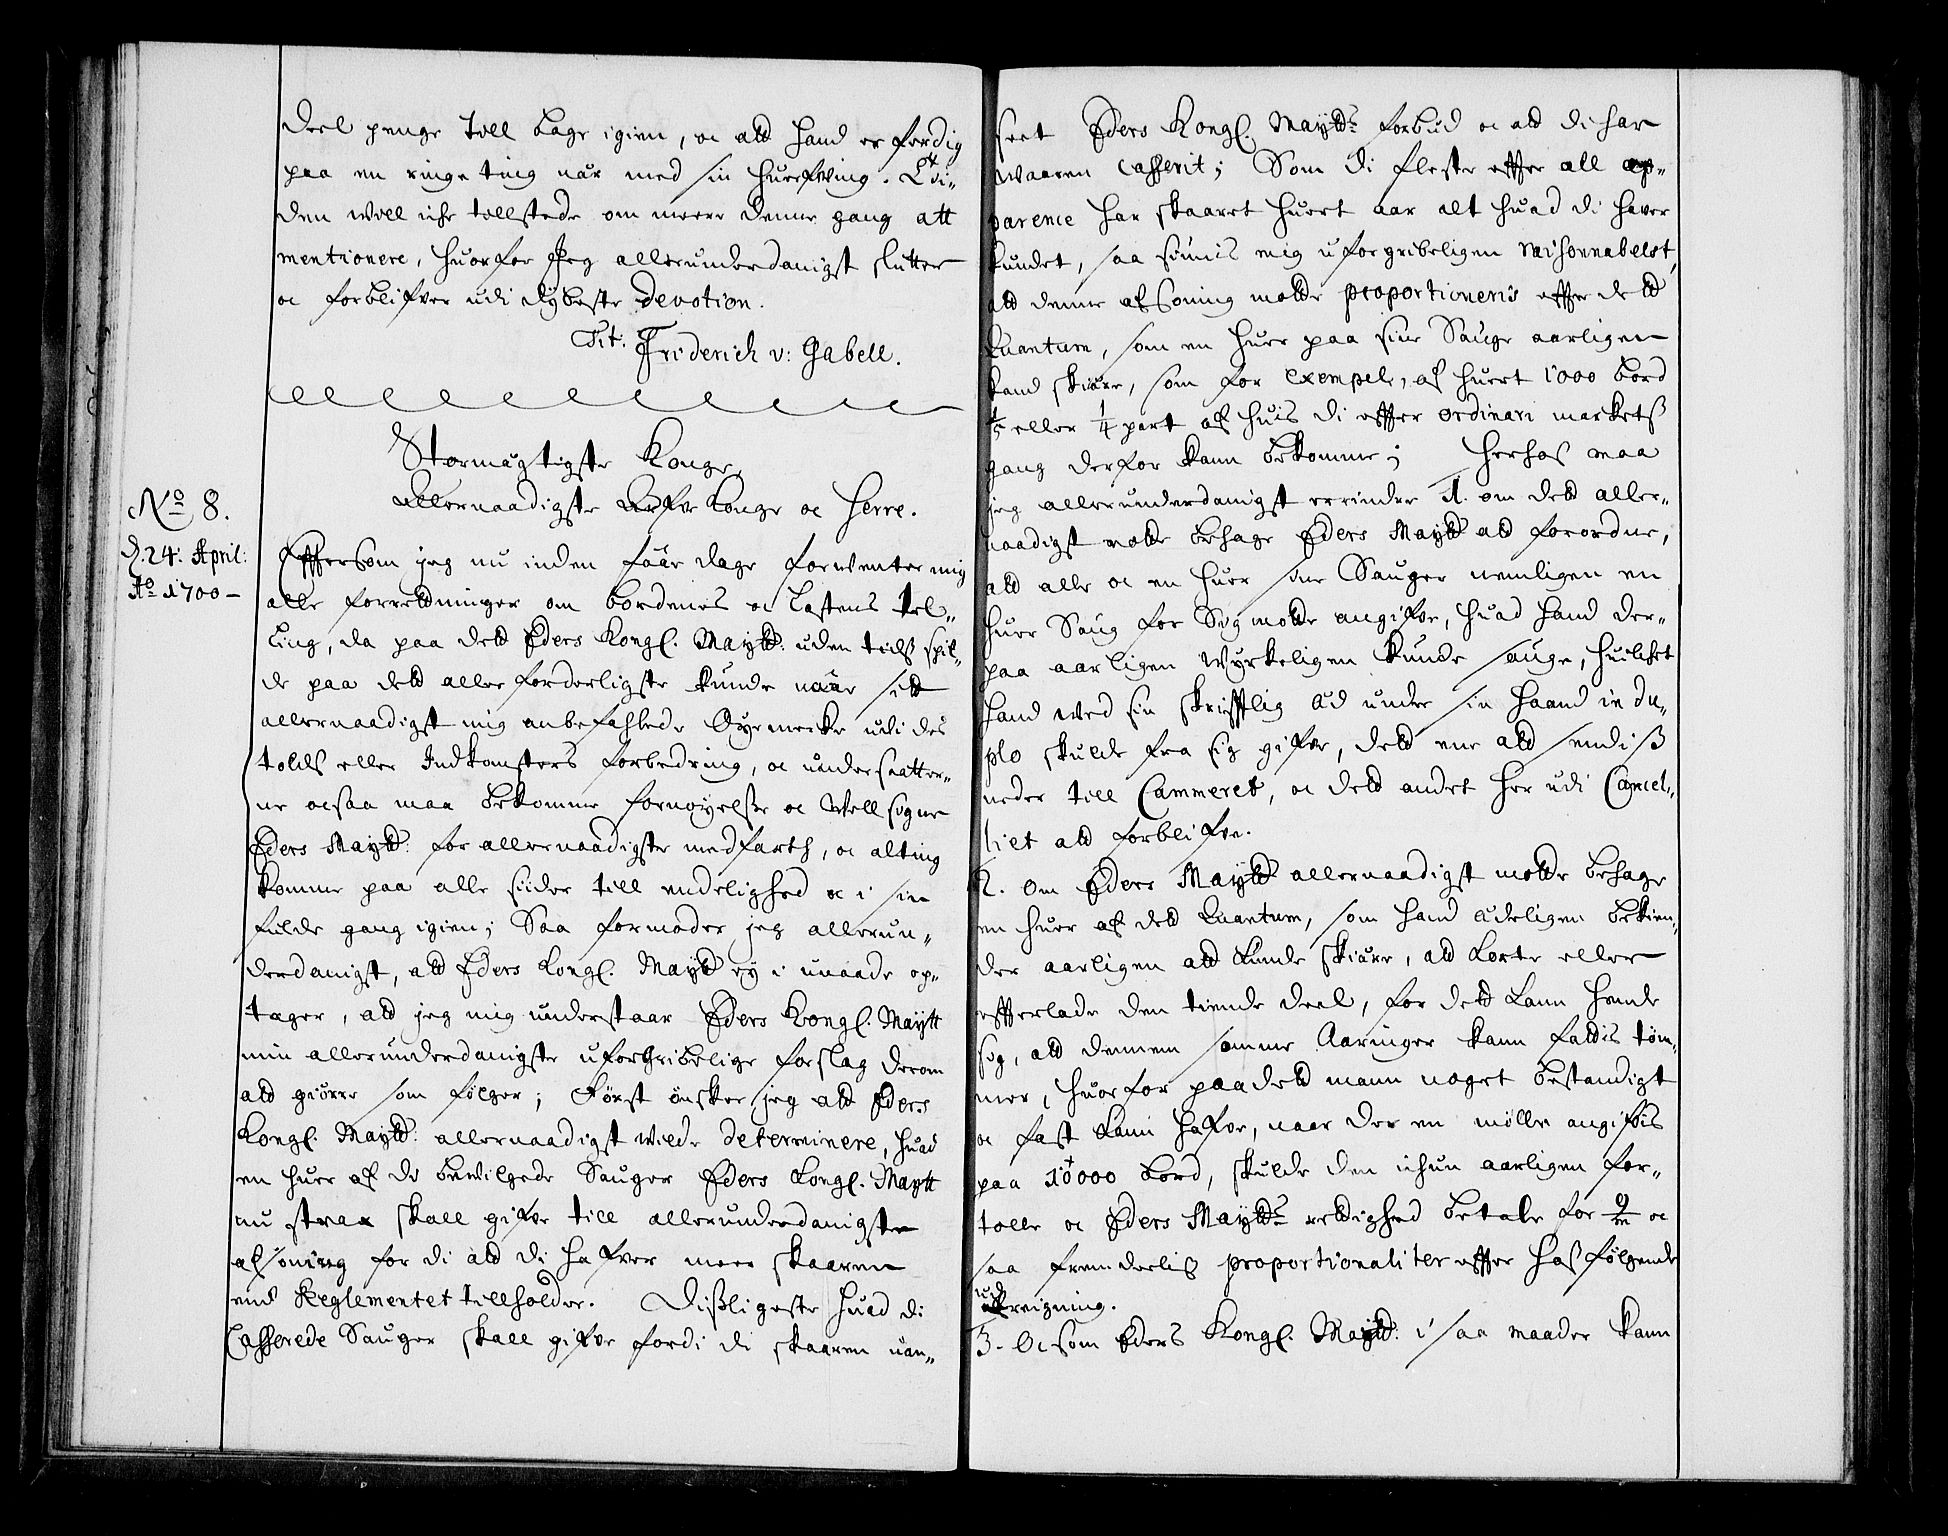 deel penge toll bage igien, oc att hand er ferdig
paa en ringe ting nær med sin huerfving.
den woll icke tollstede om meere denne gang att
mentionere, huorfor Jeg allerunderdanigst slutter
oc forblifver udi dybeste Devotion.
Tit. Friderich v: Gabell.
Stormægtigste Konge,
Allernaadigste Arfve Konge oc Herre.
No 8.
d. 24: April:
Ao 1700 –
Effersom jeg nu inden faar dage forwenter mig
alle forretninger om bordenes oc Lastens tel„
ling, da paa dett Eders Kongl. Maytt: uden tids spil„
de paa dett aller forderligste kunde naae sitt
allernaadigst mig anbefahlede Øyemerke udi des
tolds eller Indkomsters forbedring, oc undersaatter„
ne ocsaa maa bekomme fornøyelse oc Well signe
Eders Maytt: for allernaadigste medfarth, oc alting
komme paa alle siider till endelighed oc i sin
fulde gang igien; Saa formoder jeg allerun„
derdanigst, att Eders Kongl. Maytt ey i unaade op„
tager, att jeg mig understaar Eders Kongl. Maytt
min allerunderdanigste uforgribelige forslag derom
att giørre som følger; Først ønsker jeg att Eders
Kongl. Maytt: allernaadigst wilde determinere, huad
en huer af de bewilgede Sauger Eders Kongl. Maytt
nu strax skall gifve till allerunderdanigste
afsoning for di att di hafver meer skaaren
end Reglementet tillholder. Disligeste huad di
Casserede Sauger skall gifve fordi di skaaren uan„
seet Eders Kongl. Maytts forbud oc att di har
waaren Casserit; Som di fleste effter all ap„
parence har skaaret huert aar alt huad di haver
kundet, saa siunis mig uforgribeligen raisonnabelst,
att denne afsoning motte proportioneris effter dett
Quantum, som en huer paa sine Sauge aarligen
kand skiære, som for Exempel, af huert 1000 bord
1/5 eller 1/4 part af huis di effter ordinari markets
gang derfor kann bekomme; Herhos maa
jeg allerunderdanigst errindre 1. om dett aller„
naadigst motte behage Eders Maytt att forordne,
att alle oc en huer sine Sauger nemligen en
huer Saug for Sig motte angifve, huad hand der„
paa aarligen wyrkeligen kunde sauge, huilket
hand wed sin skrifftlig Æd under sin haand in du„
plo skulde fra sig gifve, dett ene att sendis
neder till Cammeret, oc dett andet her udi Cancel„
liet att forblifve.
2. Om Eders Maytt allernaadigst motte behage
en huer af dett Quantum, som hand ædeligen bekien„
der aarligen att kunde skiære, att korte eller
effterlade den tiende deel, for dett kann hende
sig, att dennem somme Aaringer kann fattis tøm„
mer, huorfor paa dett mann noget bestandigt
oc fast kann hafve, naar der en mølle angifvis
paa 10000 bord, skulde den ichun aarligen for„
tolle oc Eders Maytts rettighed betale for 9/m oc
saa fremdeelis proportionaliter effter hosfølgende
udreigning.
3. Oc som Eders Kongl. Maytt: i saa maader kann